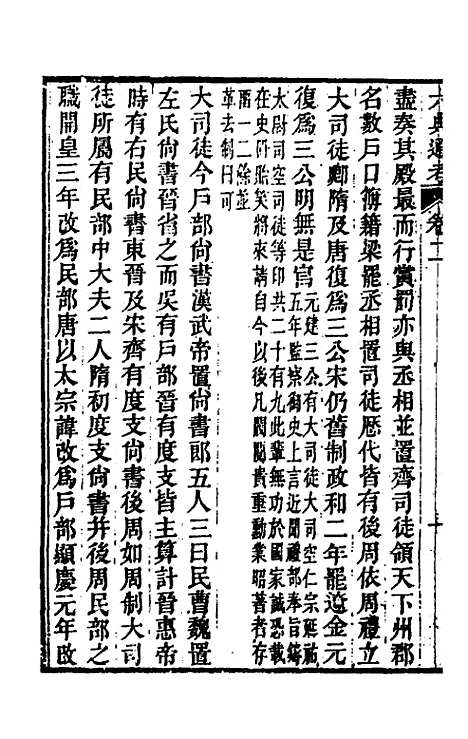 六典通考 卷十一
盡奏其殿最而行賞罰亦與丞相並置齊司徒領天下州郡
名數戶口簿籍梁罷丞相置司徒歷代皆有後周依周禮立
大司徒卿隋及唐復爲三公宋仍舊制政和二年罷遼金元
復爲三公明無是官元建三公有大司徒大司空仁宗延祐
五年監察御史上言近聞禮部奉旨鑄
太尉司空司徒等印共二十有九此輩無功於國家誠恐載
在史冊貽笑將來請自今以後凡閥閱貴重勳業昭著者存
一二餘並
革去制曰可
大司徒今戶部尙書漢武帝置尙書郎五人三曰民曹魏置
左民尙書晉省之而吳有戶部晉有度支皆主算計晉惠帝
時有右民尙書東晉及宋齊有度支尙書後周如周制大司
徒所屬有民部中大夫二人隋初度支尙書幷後周民部之
職開皇三年改爲民部唐以太宗諱改爲戶部顯慶元年改